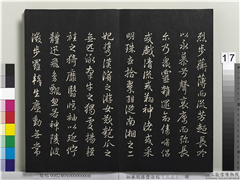 烈步蘅薄而流芳超長吟
以永慕兮聲哀厲而彌長
尔乃眾靈雜遝命儔嘯侶
或戲清流或翔神渚或采
明珠或拾翠羽從南湘之二
妃攜漢濱之游女歎匏瓜之
無匹詠牽牛之獨處揚輕
袿之猗靡翳脩袖以延佇
體迅飛鳧飄忽若神陵波
微步羅襪生塵動無常
17